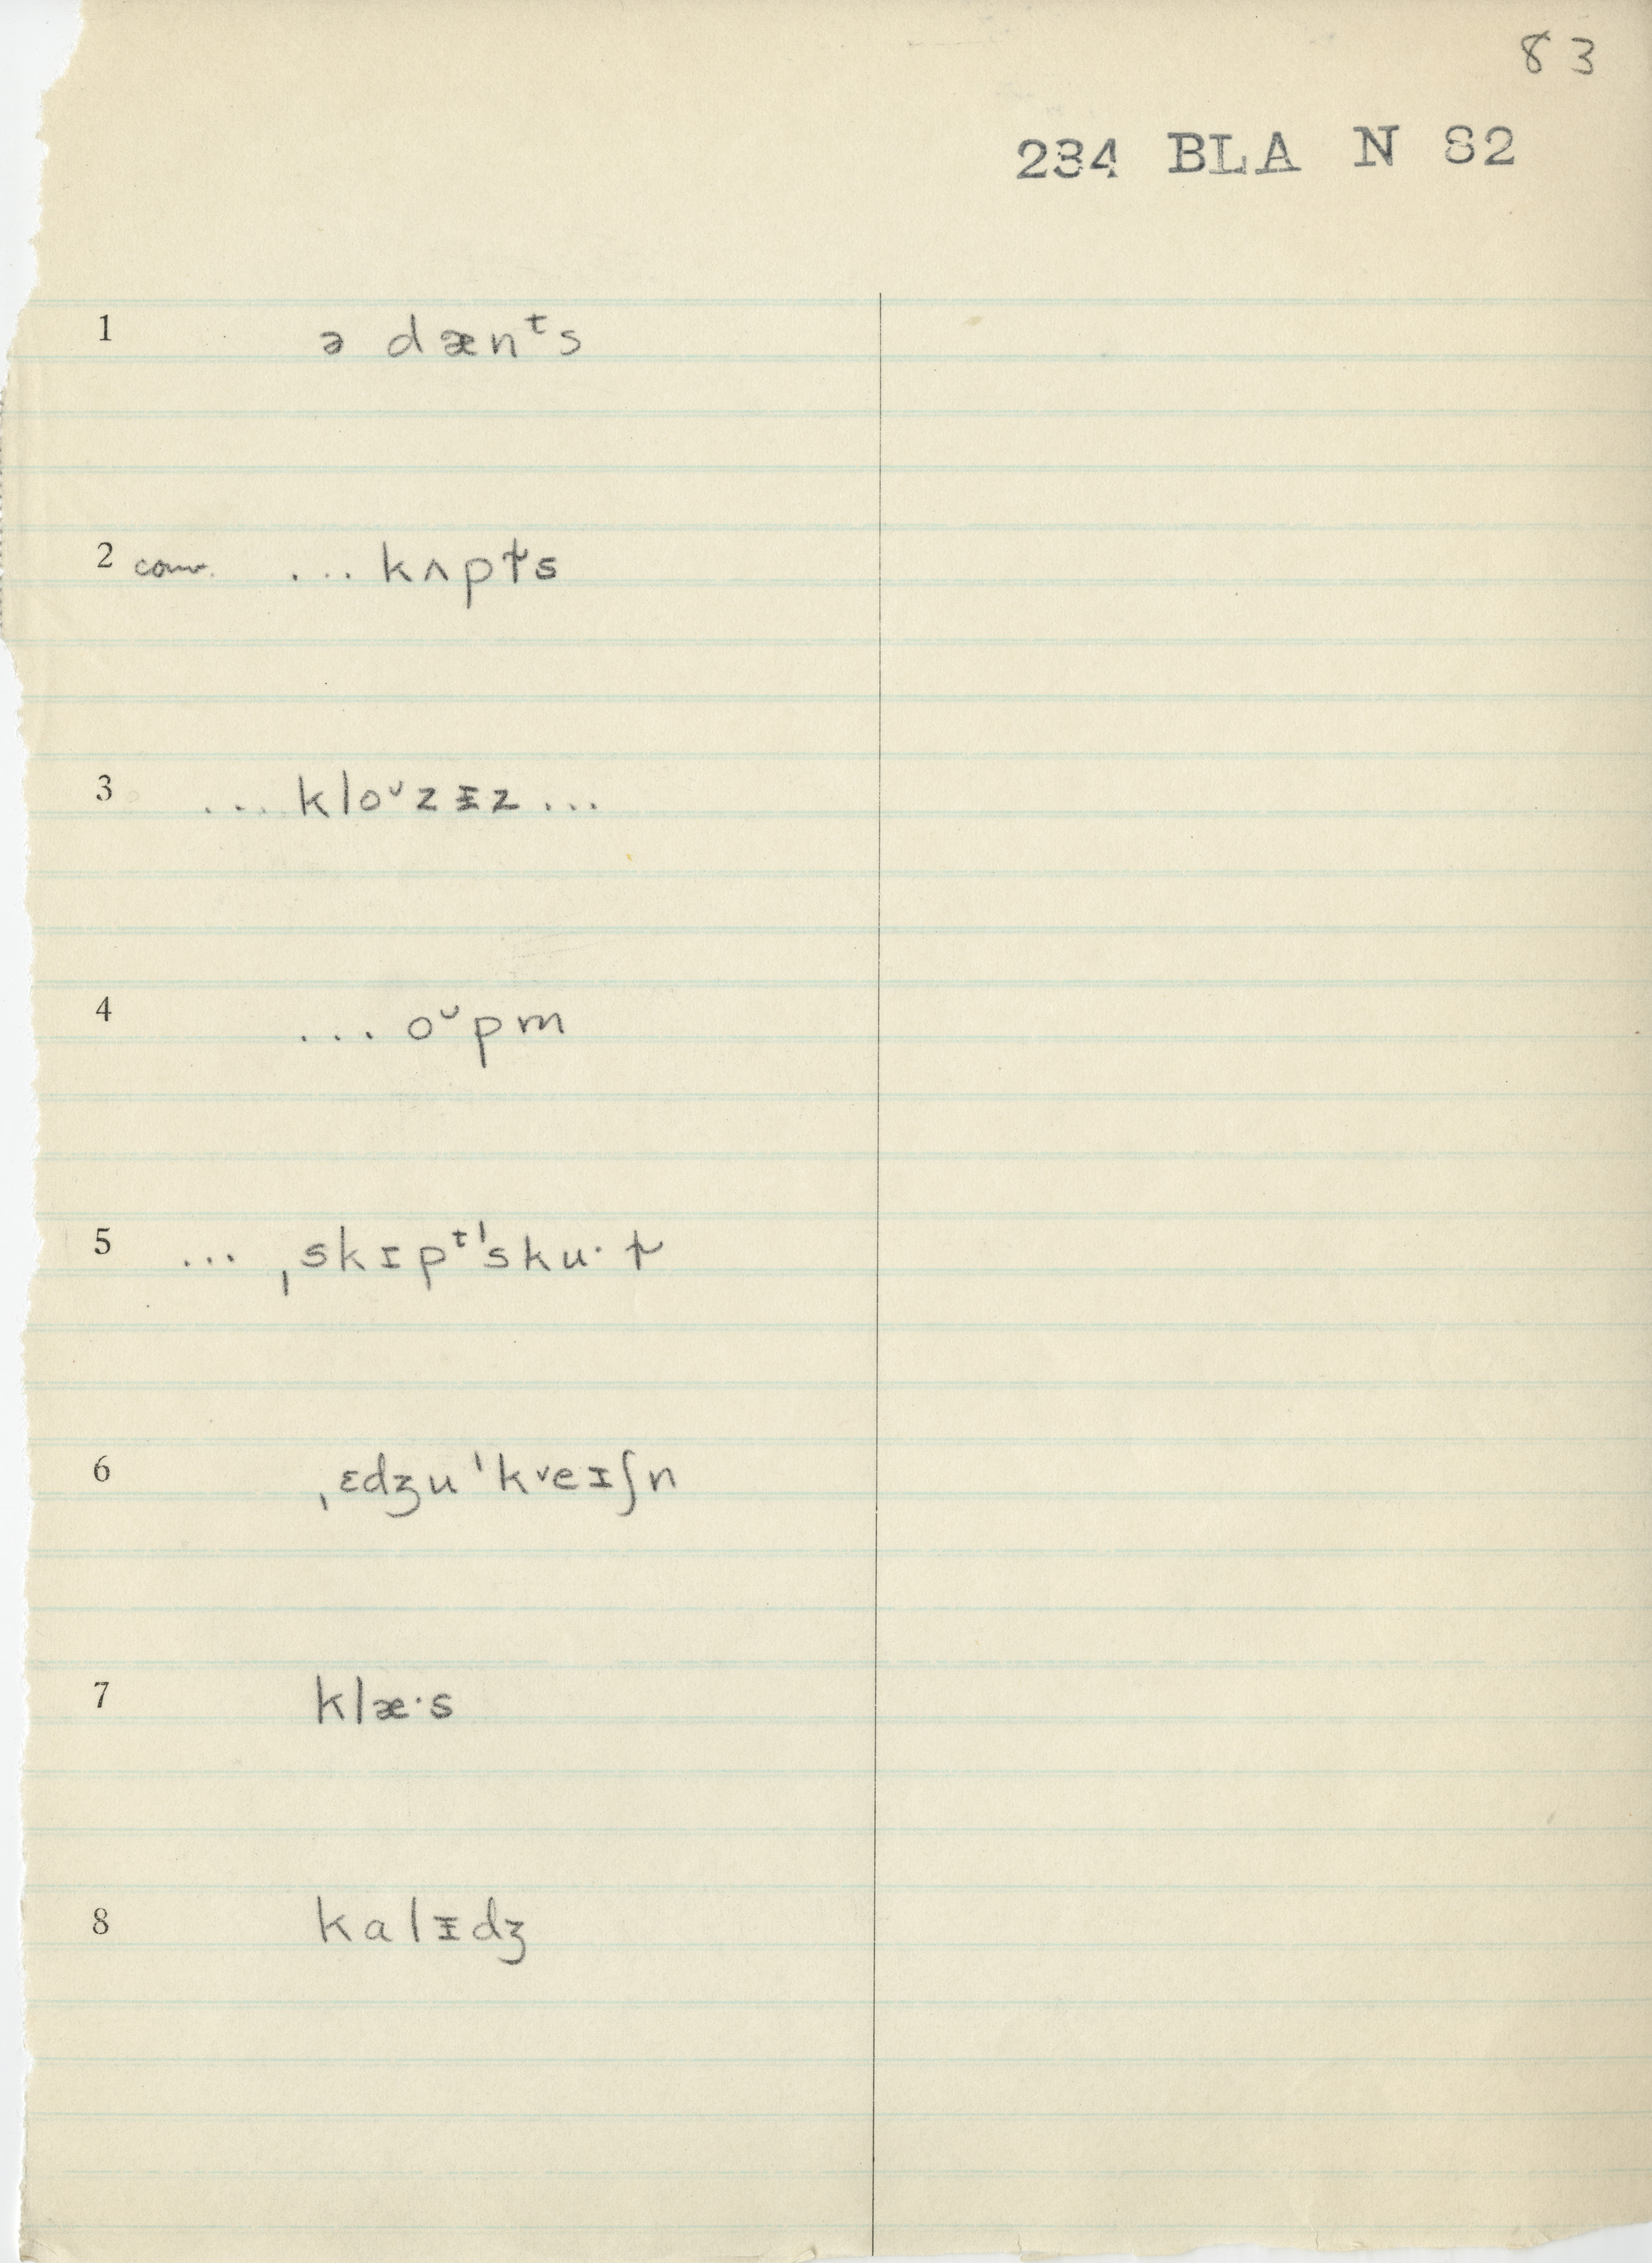 83
234 BLA N 82
1 ə dænᵗs
2 conv. ... kʌpt̬s
3 ... kloᶷzɪ̵z ...
4 ... oᶷpm
5 ... ˌskɪpᵗˈsku·t̬
6 ˌɛdʒuˈkᵛeɪʃn
7 klæ·s
8 kalɪ̵dʒ